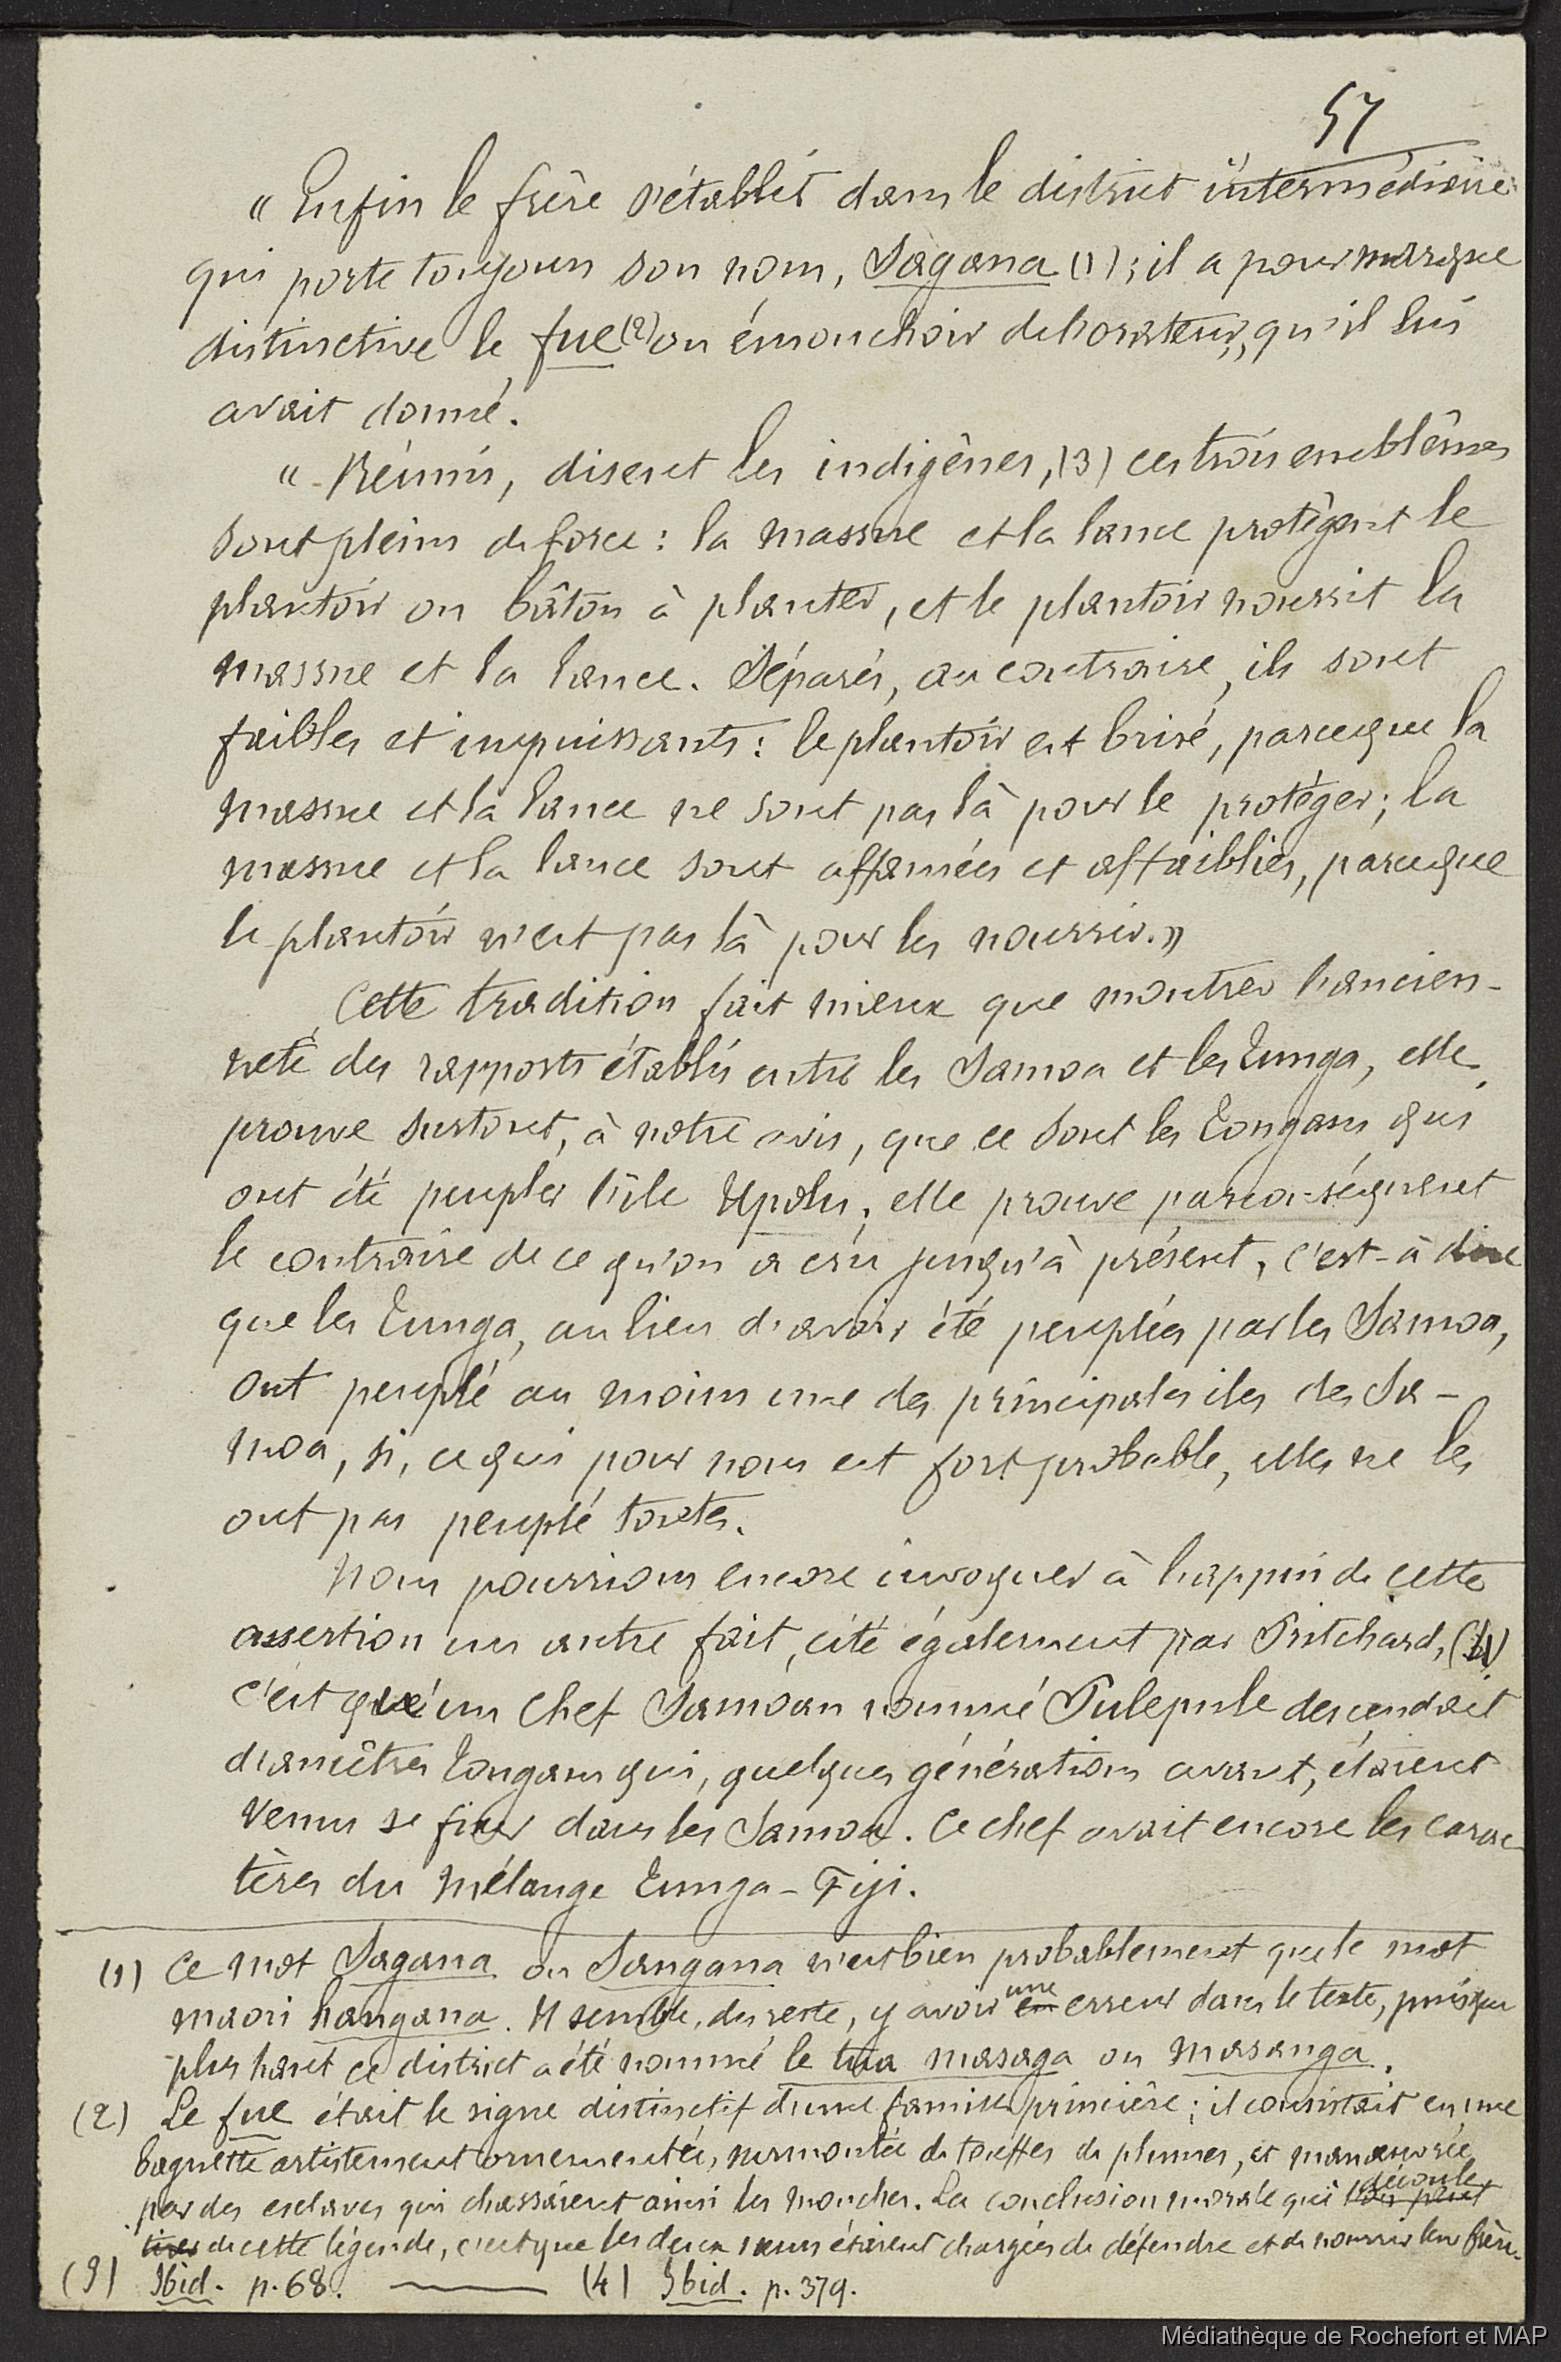 57
« Enfin le frère s'établit dans le district intermédiaire
qui porte toujours son nom, Sagana (1); il a pour marque
distinctive le fue (2) ou émouchoir de l'orateur, qu'il lui
avait donné.
« Réunis, disent les indigènes, (3) ces trois emblêmes
sont pleins de force : la massue et la lance protègent le
plantoir ou bâton à planter, et le plantoir nourrit la
massue et la lance. Séparés, au contraire, ils sont
faibles et impuissants : le plantoir est brisé, parceque la
massue et la lance ne sont pas là pour le protéger; la
massue et la lance sont affamées et affaiblies, parceque
le plantoir n'est pas là pour les nourrir. »
Cette tradition fait mieux que montrer l'ancien-
neté des rapports établis entre les Samoa et les Tunga, elle
prouve surtout, à notre avis, que ce sont les Tongans qui
ont été peupler l'île Upolu; elle prouve par conséquent
le contraire de ce qu'on a cru jusqu'à présent, c'est-à dire
que les Tunga, au lieu d'avoir été peuplées par les Samoa,
ont peuplé au moins une des principales iles des Sa-
moa, si, ce qui pour nous est fort probable, elles ne les
ont pas peuplé toutes.
Nous pourrions encore invoquer à l'appui de cette
assertion un autre fait, cité également par Pritchard, (4)
c'est qu'un chef Samoan nommé Pulepule descendait
d'ancêtres Tongans qui, quelques générations avant, étaient
venus se fixer dans les Samoa. Ce chef avait encore les carac
tères du mélange Tunga-Fiji.
(1) Ce mot Sagana ou Sangana n'est bien probablement que le mot
maori hangana. Il semble, du reste, y avoir une erreur dans le texte, puisque
plus haut ce district a été nommé le tua masaga ou masanga.
(2) Le fue était le signe distinctif d'une famille princière; il consistait en une
baguette artistement ornementée, surmontée de touffes de plumes, et manœuvrée
par des esclaves qui chassaient ainsi les mouches. La conclusion morale qui découle
de cette légende, c'est que les deux sœurs étaient chargées de défendre et de nourrir leur frère.
(3) Ibid. p. 68. (4) Ibid. p. 379.
Médiathèque de Rochefort et MAP